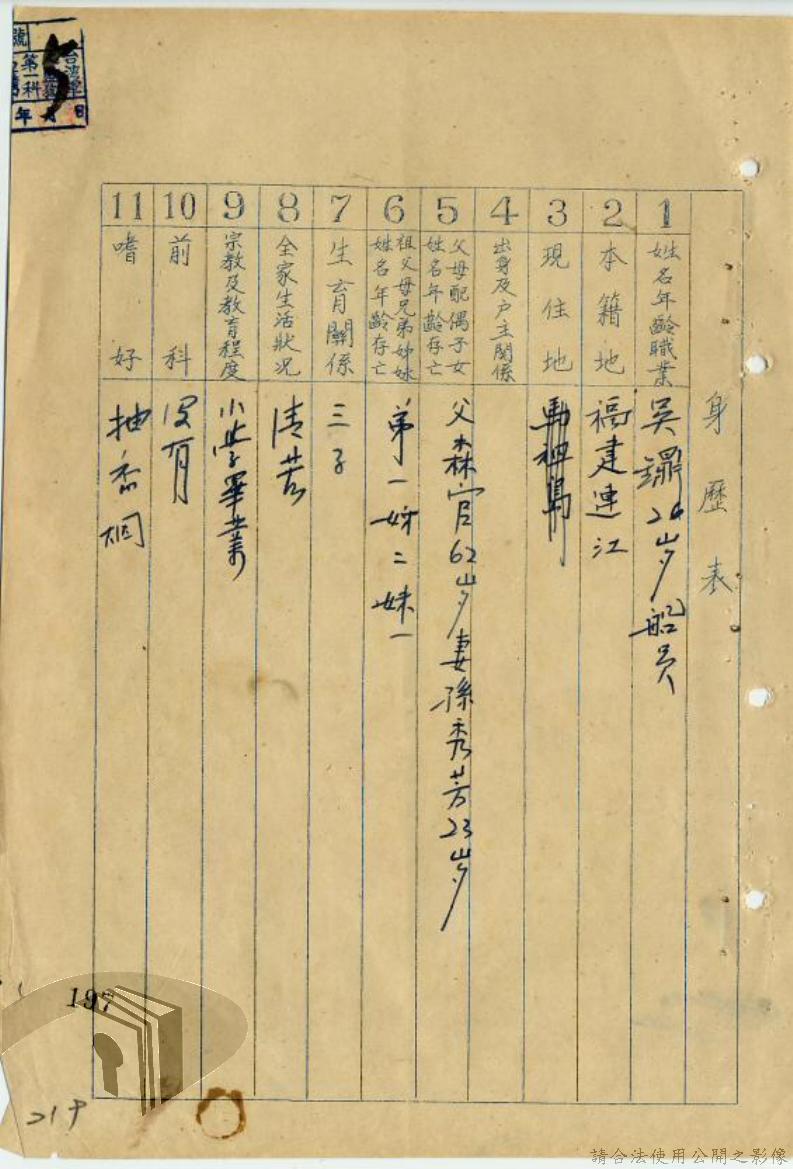 身歷表
1 姓名年齡職業 吳 24岁 船員
2 本籍地 福建連江
3 現住地 馬祖島
4 出身及戶主關係
5 父母配偶子女姓名年齡存亡 父森官62岁妻孫秀芳23岁
6 祖父母兄弟姊妹姓名年齡存亡 弟一姊二妹一
7 生育關係 三子
8 全家生活狀况 清苦
9 宗教及教育程度 小學畢業
10 前科 没有
11 嗜好 抽香烟
號
第一科
年月日
5
197
請合法使用公開之影像